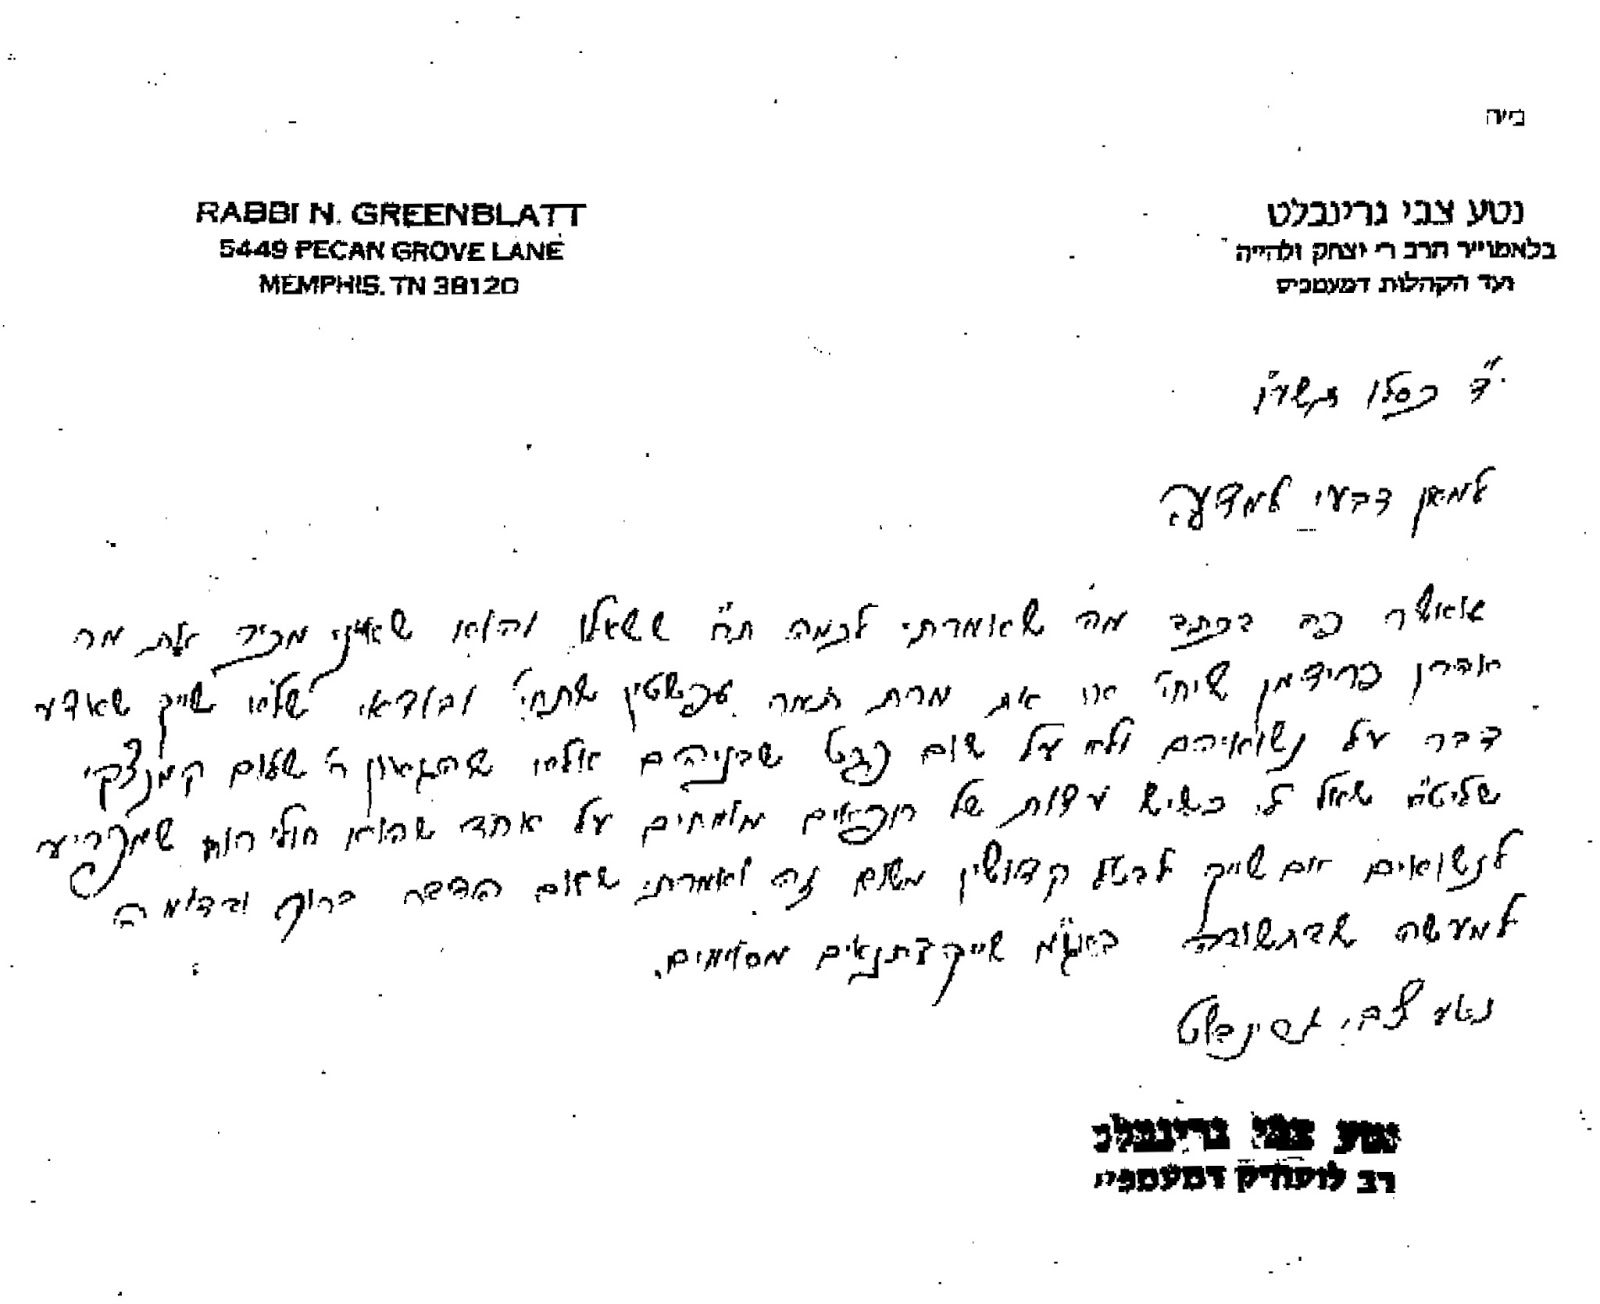 ב״ה
RABBI N. GREENBLATT
5449 PECAN GROVE LANE
MEMPHIS, TN 38120
נטע צבי גרינבלט
בלאמו״ר הרב ר׳ יצחק זלה״ה
ועד הקהלות דמעמפיס
י״ד כסלו תשע״ו
למאן דבעי למדעי
אואשר פה בכתב מה שאמרתי לכמה ת״ח ששאלו והוא שאיני מכיר את מר
אהרן פרידמן שיחי׳ או את מרת תמר עפשטין שתחי׳ ובודאי שלא שייך שאדע
דבר על נשואיהם ולא על שום פרט שביניהם אלא שהגאון ר׳ שלום קמנצקי
שליט״א שאל לי כשיש עדות של רופאים מומחים על אחד שהוא חולי רוח שמפריע
לנשואים אם שייך לבטל קדושין משום זה ואמרתי ששום הדבר ברור ובדומה
למעשה שבתשובה באג״מ שייך בתנאים מסוימים.
נטע צבי גרינבלט
נטע צבי גרינבלט
רב דמעמפיס